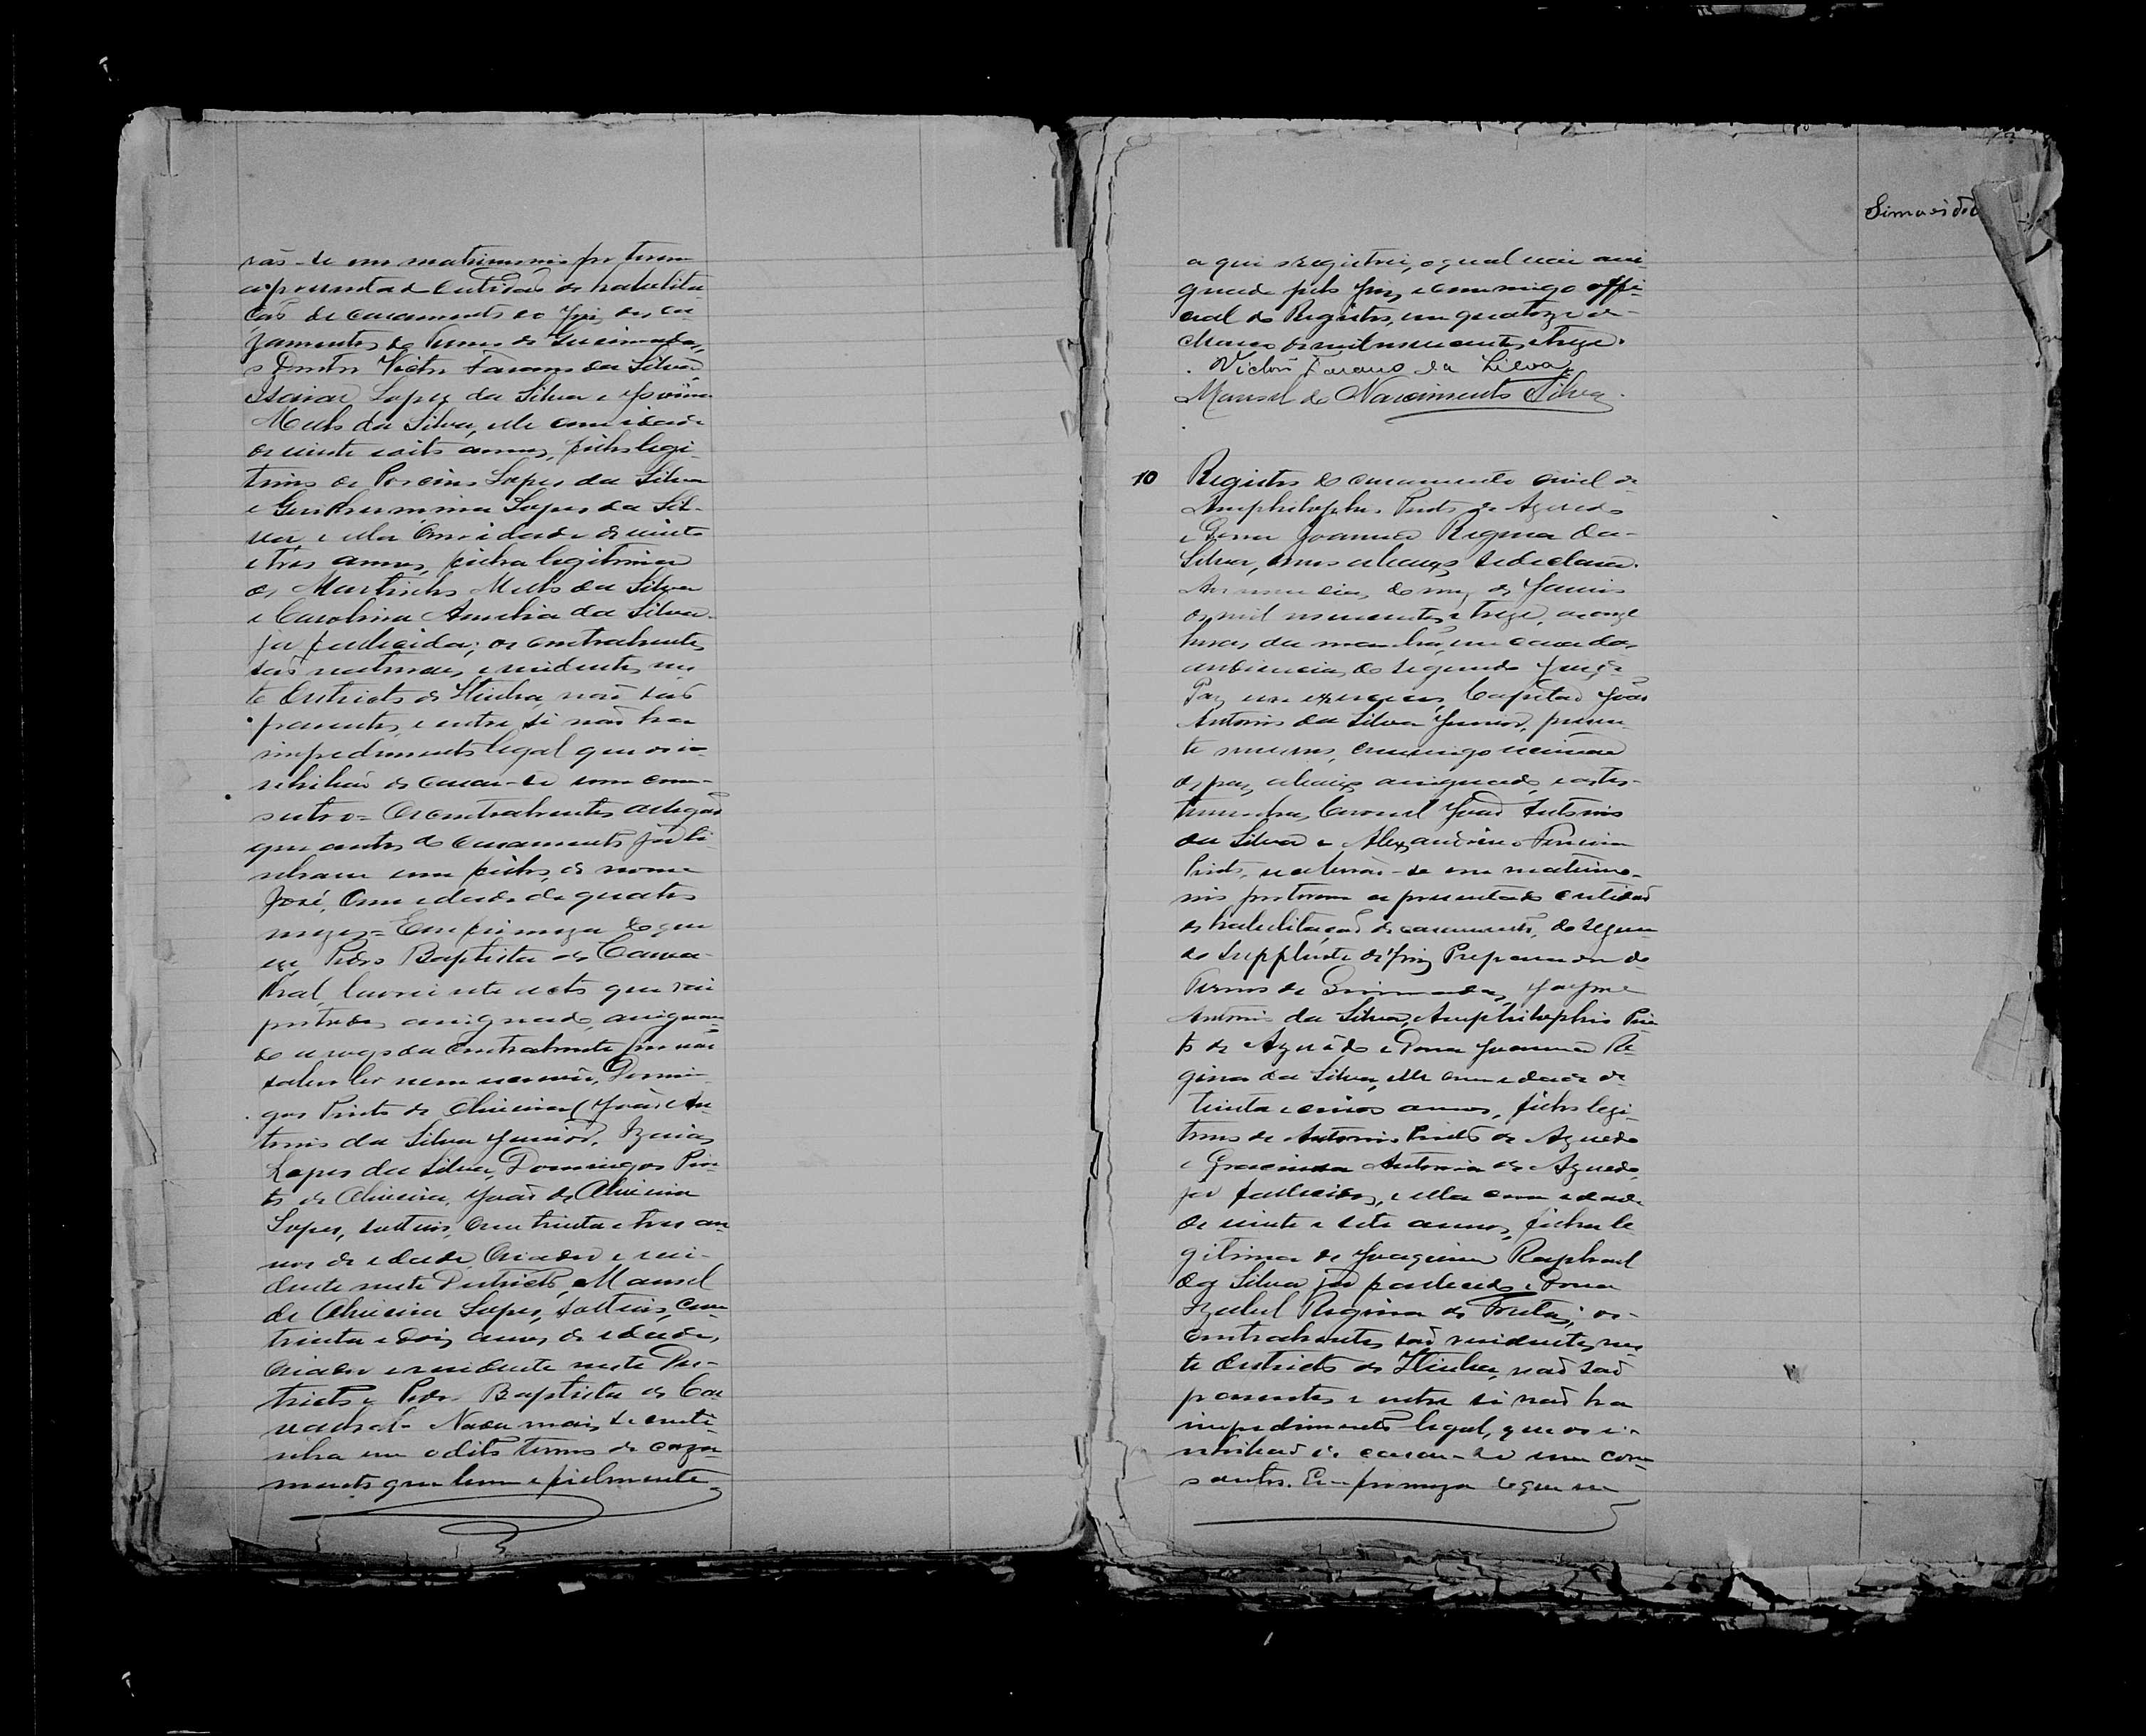 rão-se em matrimonio por terem
apresentado certidão de habilita
ção de casamento do Juiz dos ca
zamentos do Termo de Queimadas,
o Doutor Victor Farano da Silva
Isaias Lopes da Silva e
Mello da Silva, elle com idade
de vinte e oito annos, filho legi-
timo de Lopes da Silva
e Guilhermina Lopes da Sil-
va e ella com idade de vinte
e tres annos, filha legitima
de Mello da Silva
e Carolina Amelia da Silva
ja fallecida; os contrahentes
são naturaes, e residentes nes
te Districto de Itiuba, não são
parentes, e entre si não ha
impedimento legal que os i-
nhibão de casar-se um com
outro = Os contrahentes
que antes do casamento já ti-
nham um filho, de nome
José, com edade de quatro
mezes = Em firmeza do que
eu, Pedro Baptista de Carva-
lhal, lavrei este acto que vai
por todos assignado, assignan
do a rogo da contrahente por não
saber ler nem escrever, Domin-
gos Pinto de Oliveira (João An
tonio da Silva Junior, Izaias
Lopes da Silva, Domingos Pin
to de Oliveira, João de Oliveira
Lopes, solteiro, com trinta e tres an
nos de edade, Creador e resi-
dente neste Districto, Manoel
de Oliveira Lopes, solteiro, com
trinta e dois annos de edade,
creador e residente neste Dis-
tricto e Pedro Baptista de Car
valhal. Nada mais se conti
nha em o dito termo de caza
mento que bem e fielmente
Simões
a qui registrei, o qual vai assi-
gnado pelo Juiz e commigo offi-
cial do Registro, em quatorze de
Março de mil novecentos e treze.
Victor Farano da Silva
Manoel do Nascimento Silva
10 Registro do casamento civil de
Amphilophio Pinto de Azevedo
e Dona Joanna Regina da
Silva, como abaixo se declara.
Aos nove dias, do mez de Janeiro
de mil novecentos e treze, as onze
horas da manhã, em casa das
audiencias do segundo Juiz de
Paz em exercicio, Capitão João
Antonio da Silva Junior, presen
te mesmo, commigo escrivão
de paz, abaixo assignado, e as tes-
temunhas, Coronel João Antonio
da Silva e Alexandrino Pereira
Pinto, receberão-se em matrimo-
nio por terem apresentado certidão
de habilitação de casamento, do segun
do Supplente do Juiz Preparador do
Termo de Queimadas, Jayme
Antonio da Silva, Amphilophio Pin
to de Azevedo e Dona Joanna Re-
gina da Silva, elle com edade de
trinta e cinco annos, filho legi-
timo de Antonio Pinto de Azevedo
e Antonia de Azevedo,
ja fallecidos, e ella com edade
de vinte e sete annos, filha le
gitima de Joaquim Raphael
da Silva já fallecido e Dona
Izabel Regina de Freitas; os
contrahentes são residentes nes
te districto de Itiuba, não são
parentes e entre si não ha
impedimento legal, que os i-
nhibão de casar-se um com
o outro. Em firmeza do que eu